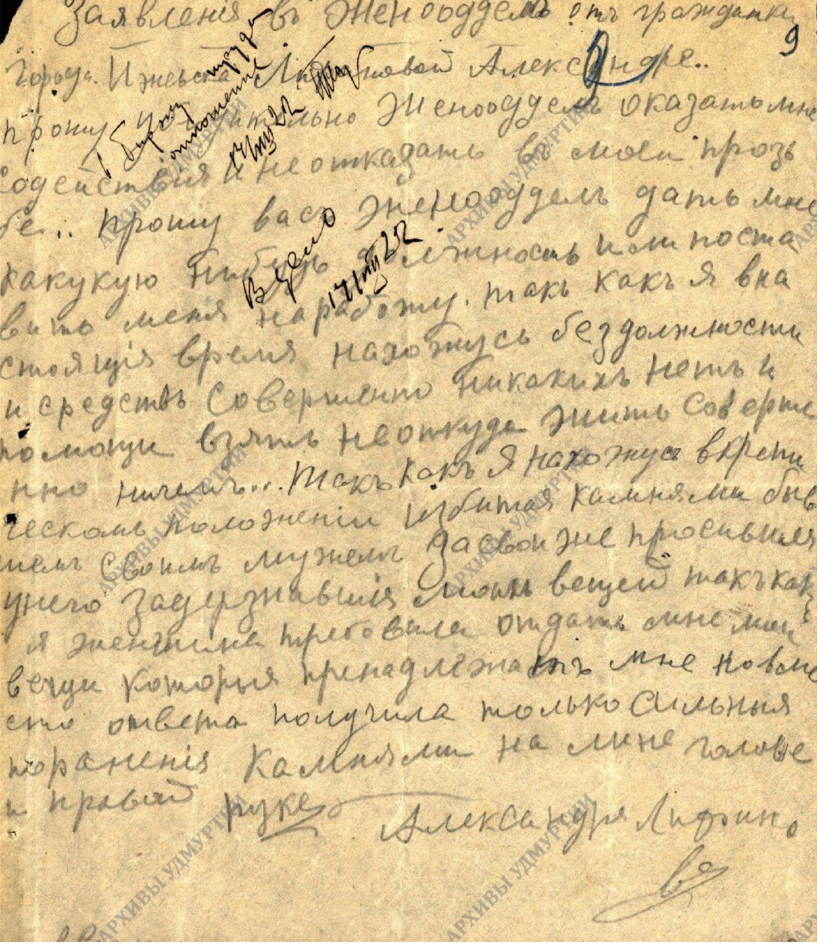 Заявленiя въ Женооддель отъ гражданки
9
города Ижевска Александре..
прошу Женооддель оказать мне
содействiя и не отказать въ моей прозь
бе.. прошу васъ Женооддель дать мне
какукую нибудь должность или поста
вить меня на работу. такъ какъ я вна
стоящiя время нахожусь без должности
и средствъ совершенно никакихъ нетъ и
помощи взять неоткуда жить соверше
нно ничемъ... такъ какъ я нахожус вкрети
ческомъ положенiи избитая камнями быв
шемъ своимъ мужемъ за свои же просивши
унего задерзнавшия моихъ вещей такъ какъ
я женщина требовала отдать мне мои
вещи которыя пренадлежатъ мне новме
сто ответа получила только сильныя
пораненiя камнями на мине голове
и правой руке
Александра Лифано
ва
в биржу труда
отношение
17/VIII 22
В дело
17/VIII 22
АРХИВЫ УДМУРТИИ